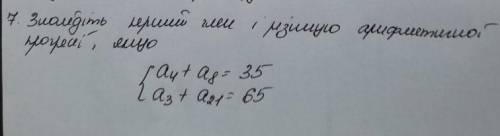 7. Знайдіть перший член і різницю арифметичної
прогресії, якщо
a₄ + a₈ = 35
a₃ + a₂₁ = 65